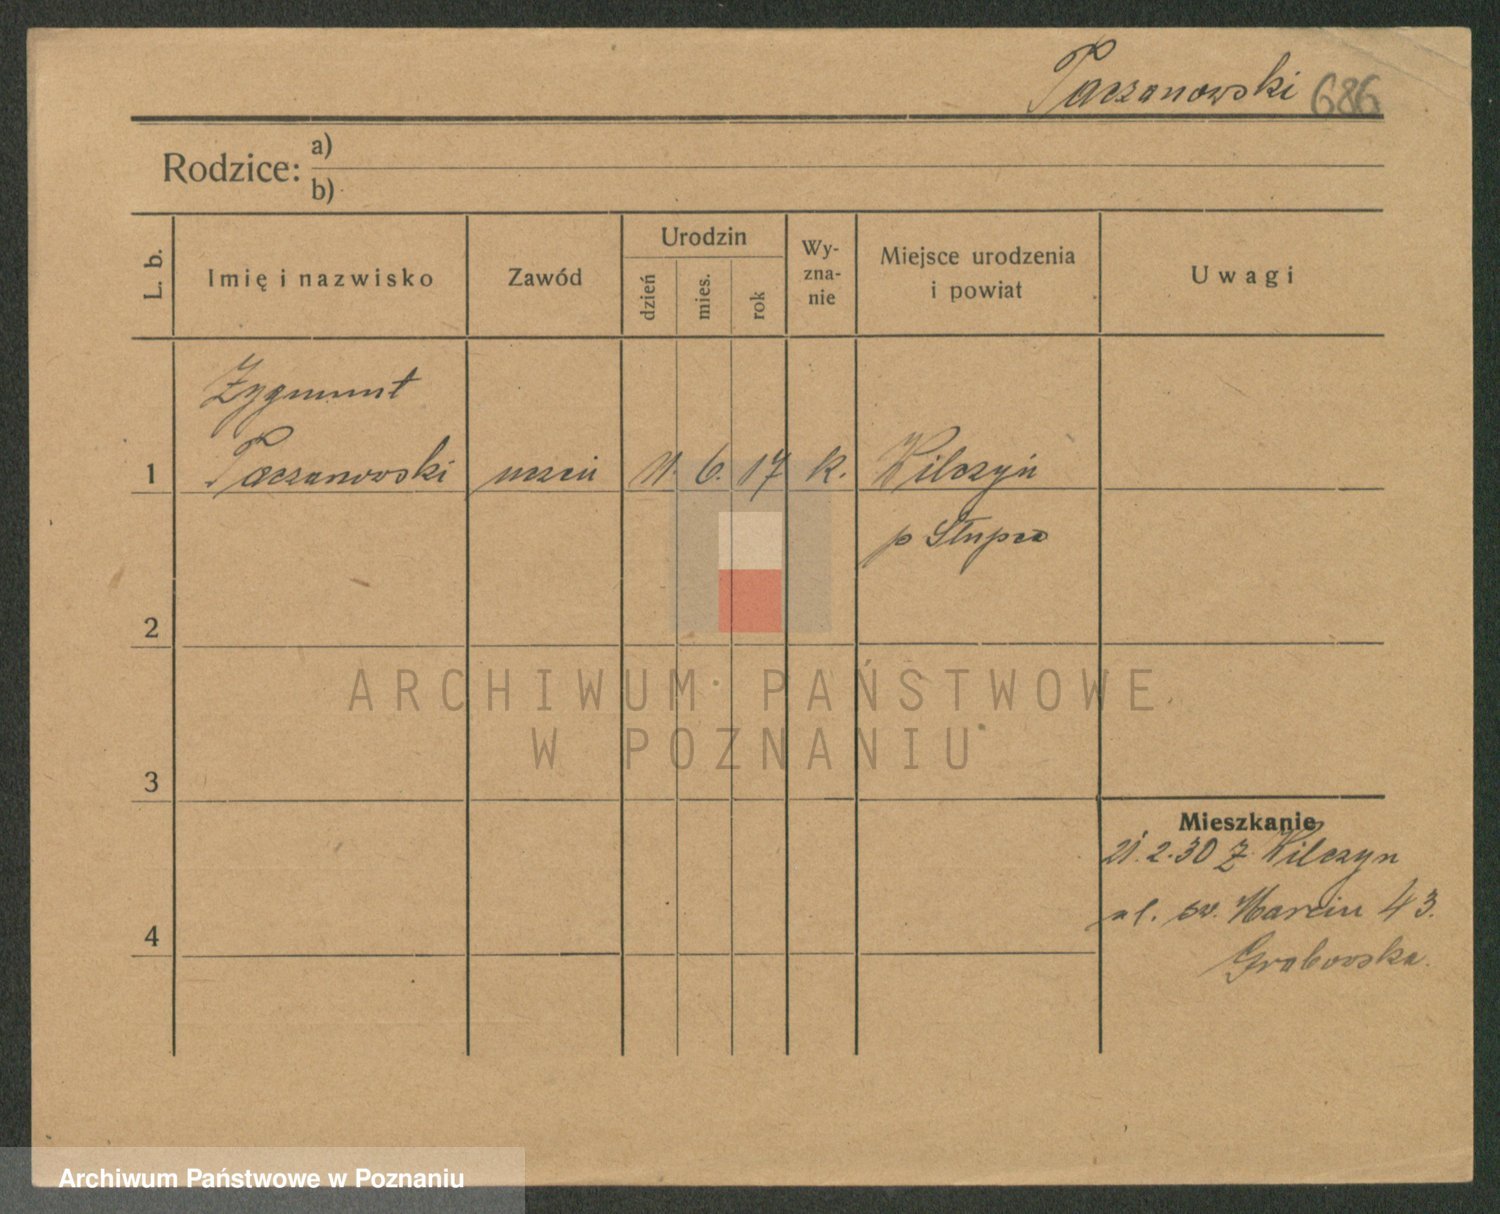 Paczanowski 686
Rodzice: a)
b)
L. b.
Imię i nazwisko
Zawód
Urodzin
dzień
mies.
rok
Wy-
zna-
nie
Miejsce urodzenia
i powiat
Uwagi
Zygmunt
1 Paczanowski uczeń 11. 6. 17 k. Wilczyn
p Słupca
2
3
4
Mieszkanie
21.2.30 z Wilczyn
ul. św. Marcin 43.
Grabowska.
ARCHIWUM PAŃSTWOWE
W POZNANIU
Archiwum Państwowe w Poznaniu